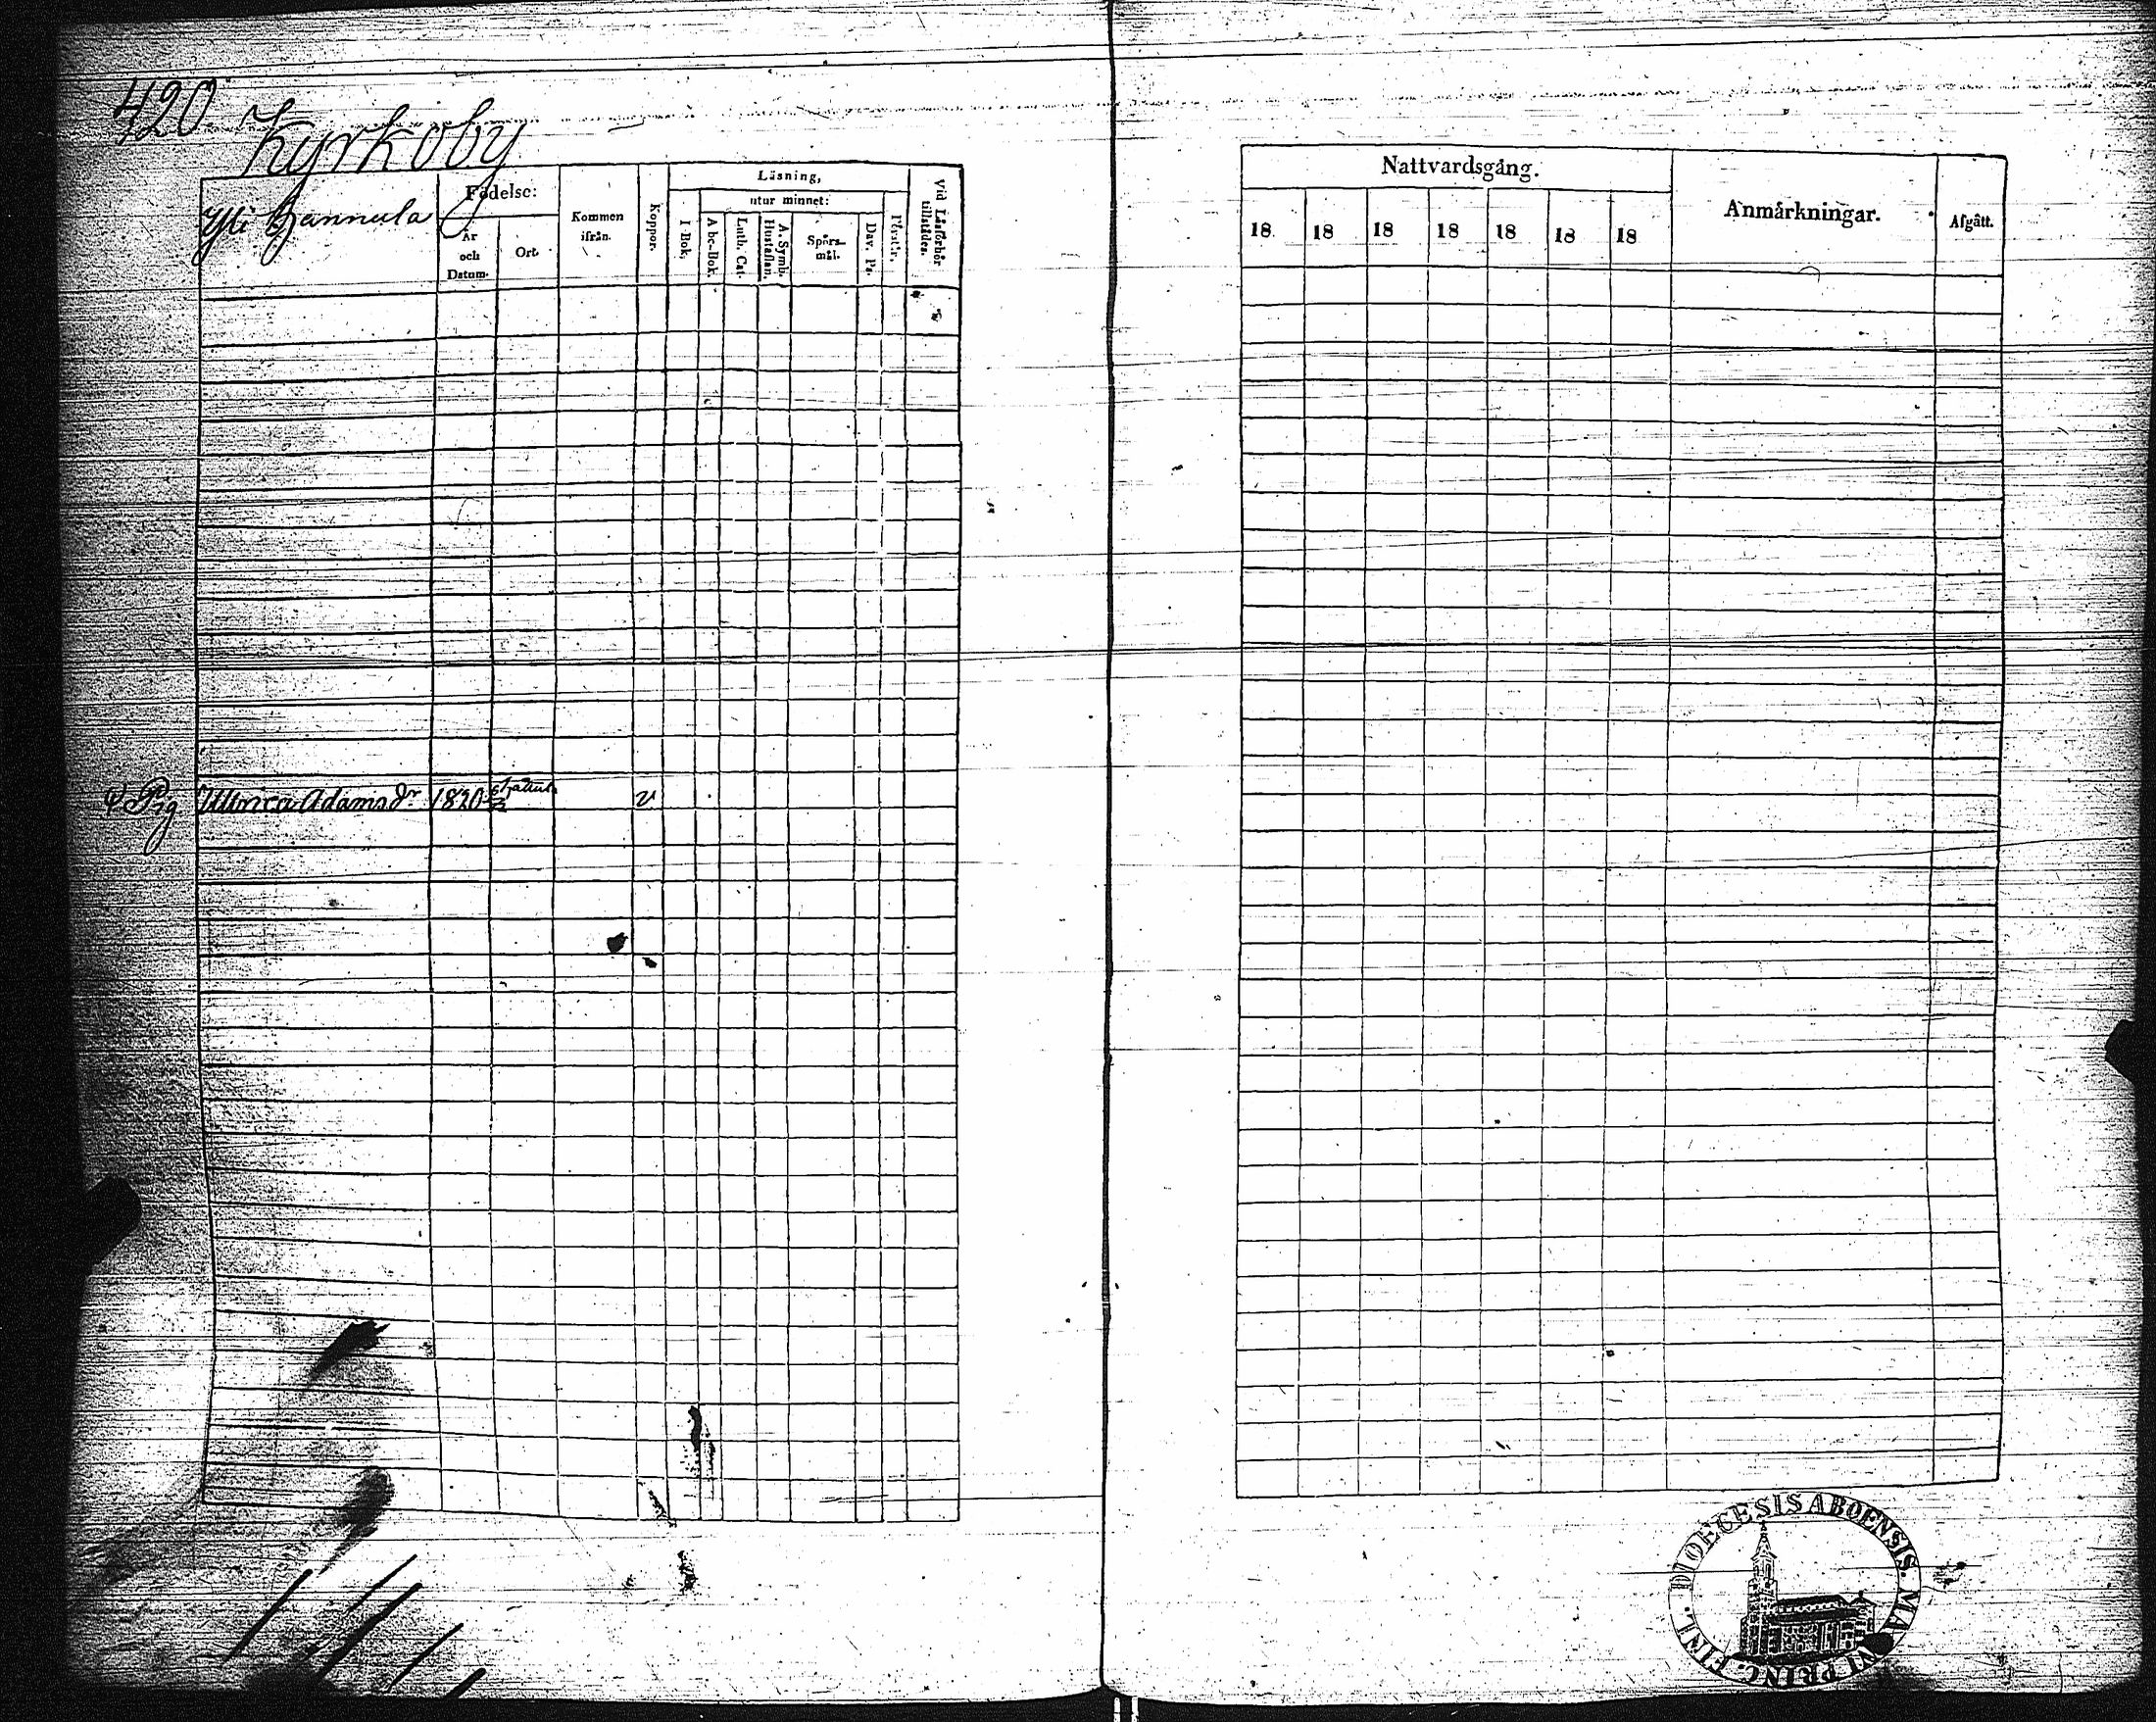 420
Kyrkoby
Yli Hannula
Födelse:
År
och
Datum.
Ort.
Kommen
ifrån.
Koppor.
Läsning,
utur minnet:
I Bok.
Abc-Bok.
Luth. Cat.
A. Symb.
Hustaflan.
Spörs-
mål.
Dav. Ps.
Vid Läsförhör
tillstädes.
Nattvardsgång.
18 18 18 18 18 18 18
Anmärkningar.
Afgått.
Pig Ulrica Adams dr 1820 v
DIOECESIS ABOENSIS. MAGNI PRINC. FINL.